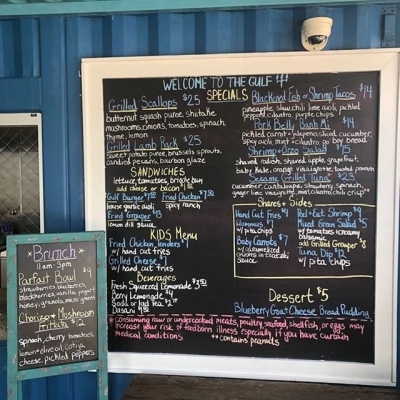 WELCOME TO THE GULF
SPECIALS
Grilled Scallops $25
butternut squash puree, shiitake
mushrooms, onions, tomatoes, spinach,
thyme, lemon
Grilled Lamb Rack $25
sweet potato puree, brussels sprouts,
candied pecans, bourbon glaze
SANDWICHES
lettuce, tomatoes, bun
add cheese or bacon
Gulf Burger
house garlic aioli
Fried Chicken
spicy ranch
Fried Grouper $13
lemon dill sauce
KIDS MENU
Fried Chicken Tenders
w/ hand cut fries
Grilled Cheese
w/ hand cut fries
Beverages
Fresh Squeezed Lemonade
Berry Lemonade $4
Soda or Iced Tea
Dasani
Blackened Fish or Shrimp Tacos $14
pineapple, slaw, chili lime aioli, pickled
peppers, cilantro, purple chips
Pork Belly Banh Mi $14
pickled carrot + jalapeno, sliced cucumber,
spicy aioli, mint + cilantro, po boy bread
Shrimp + Orzo Salad $15
shaved radish, shaved apple, grapefruit,
baby kale, orange vinaigrette, toasted peanut
Sesame Grilled Tuna $25
cucumber, cantaloupe, strawberry, spinach,
ginger lime vinaigrette, mint, cilantro, chili crisp
Shares + Sides
Hand Cut Fries $4
Hummus
w/ pita chips
Baby Carrots $7
w/ caramelized
onions in tzatziki
Sauce
Peel + Eat Shrimp
Mixed Green Salad $5
w/ tomatoes
balsamic
add Grilled Grouper $8
Tuna Dip
w/ pita chips
Dessert $5
Blueberry Goat Cheese Bread Pudding
* consuming raw or undercooked meats, poultry, seafood, shellfish, or eggs may
increase your risk of foodborn illness especially if you have curtain
medical conditions ** contains peanuts
Brunch
11am-3pm
Parfait Bowl
strawberries, blueberries,
blackberries, vanilla, yogurt,
honey, granola
Chorizo + Mushroom
Frittata $12
spinach, cherry tomatoes
lemon + olive oil, cotija
cheese, pickled peppers